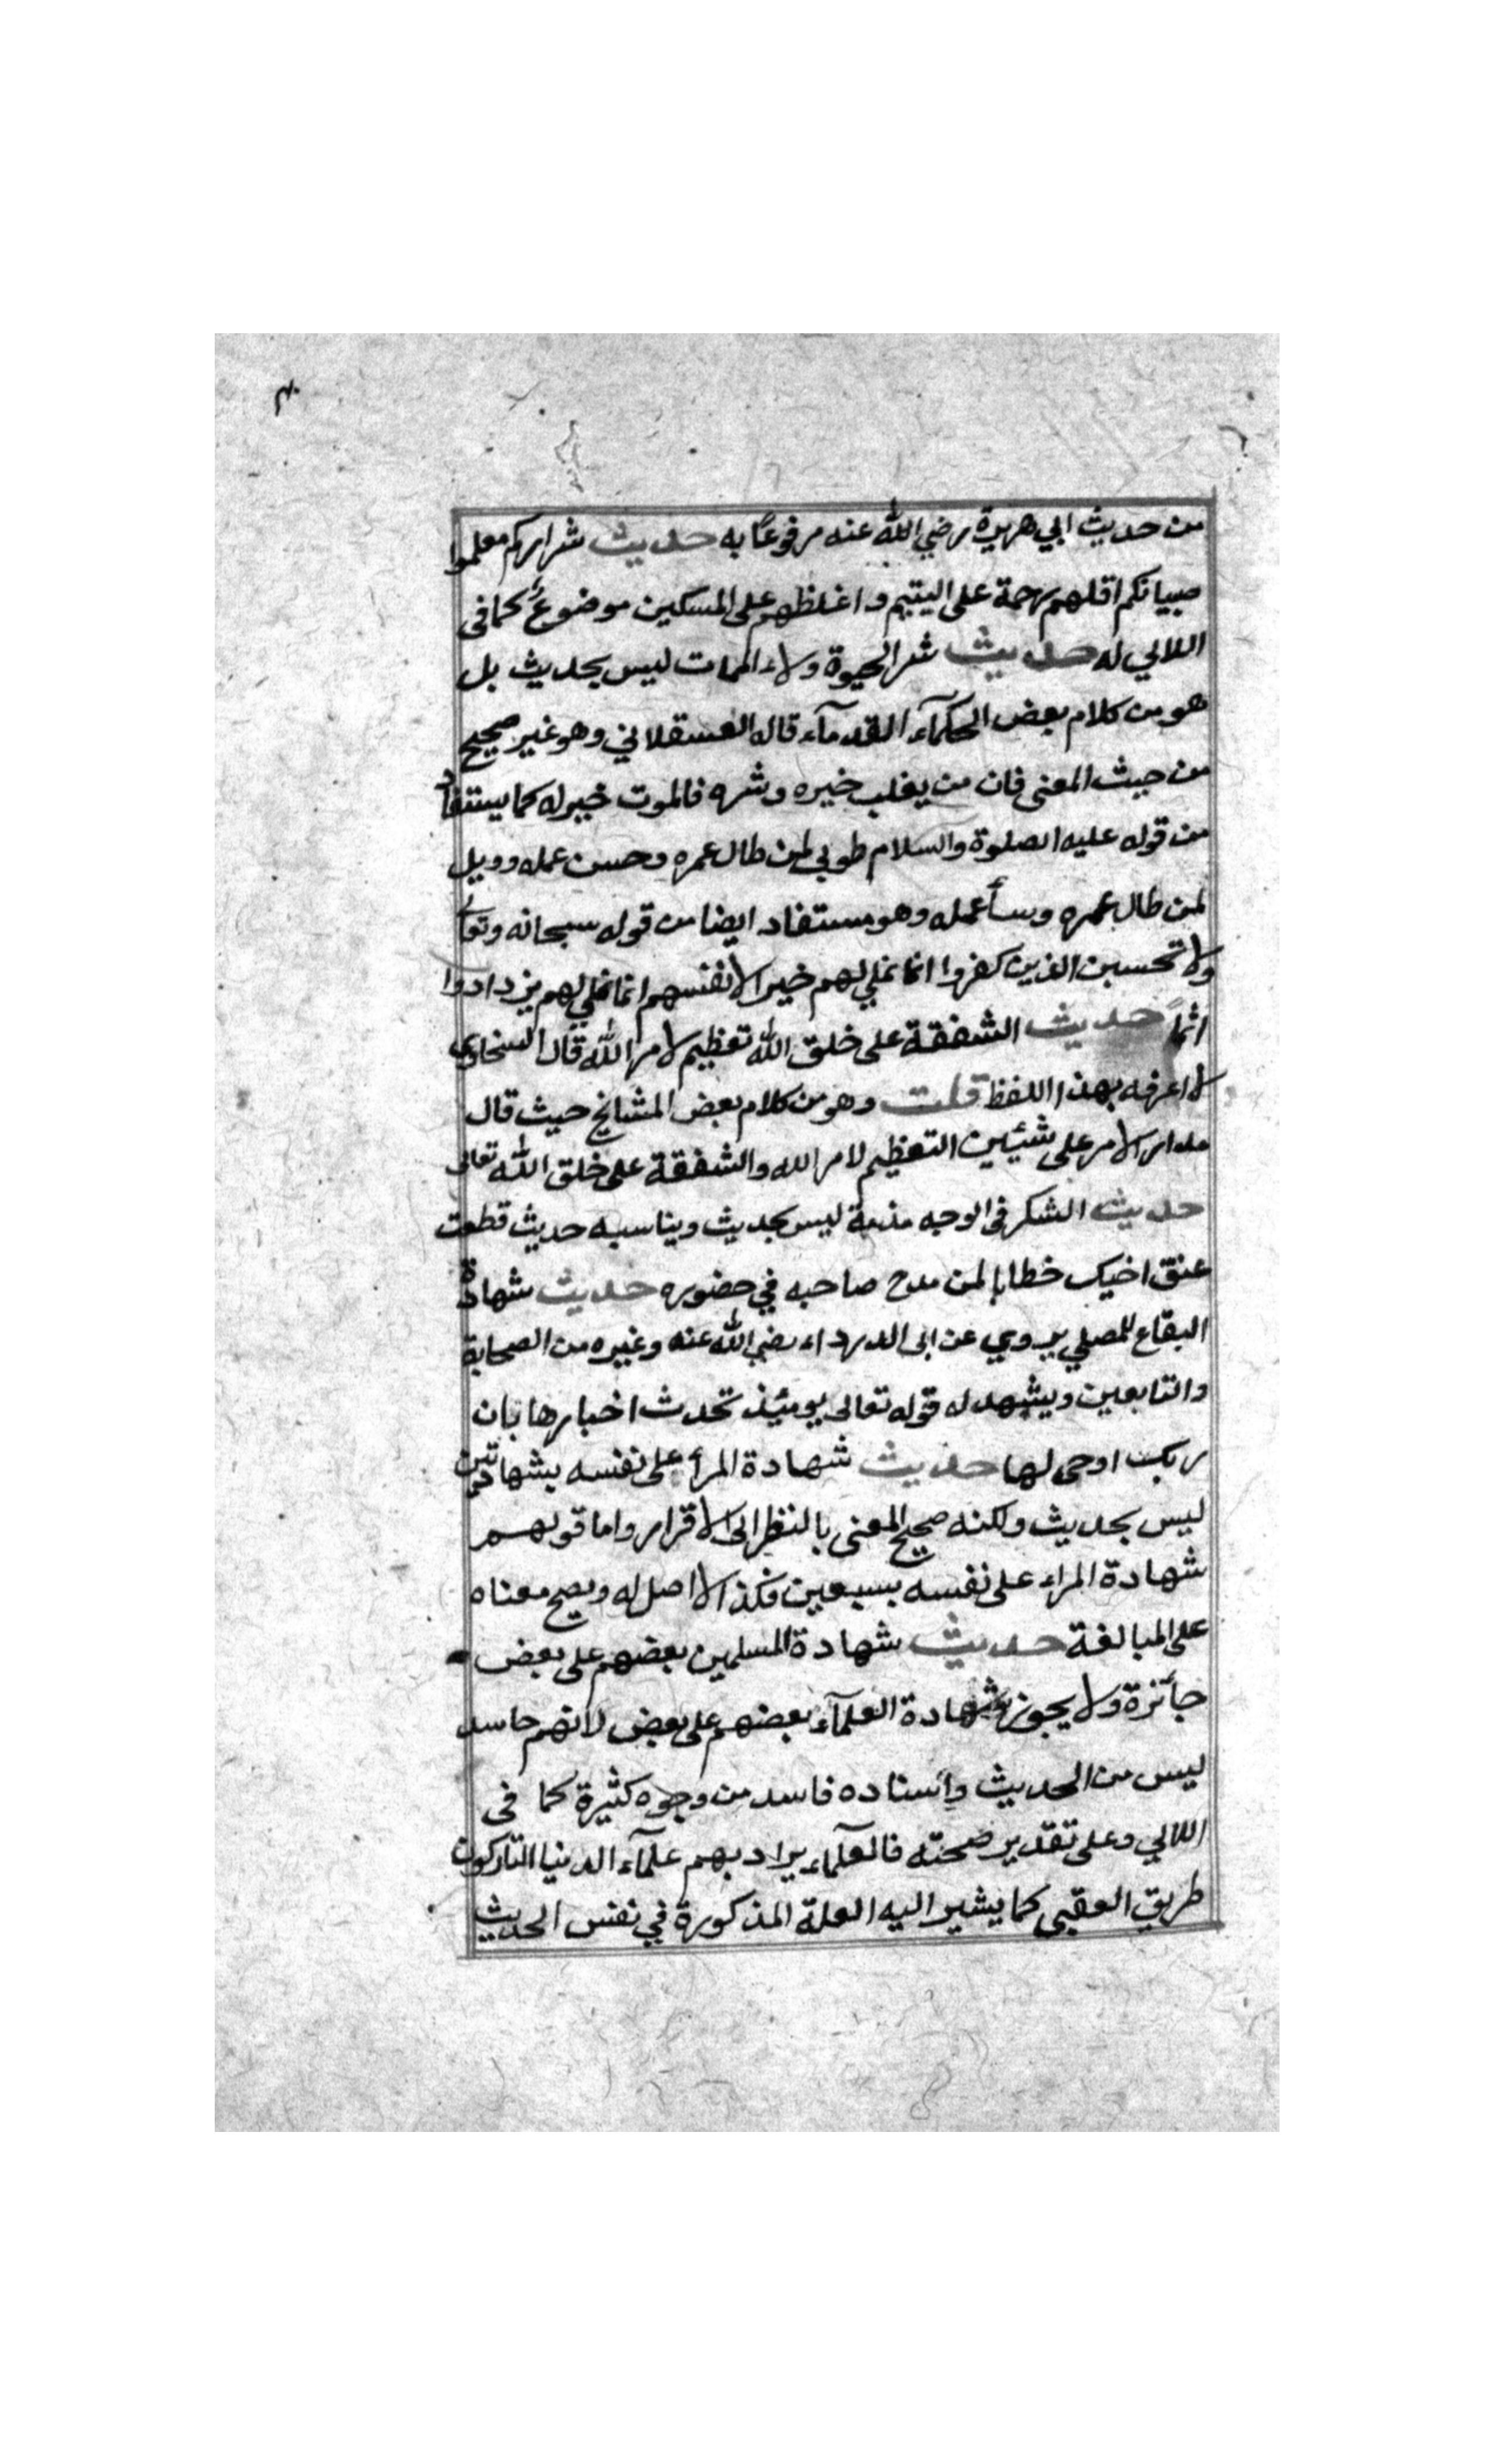 ٤٠
من حديث ابي هريرة رضي الله عنه مرفوعًا به حديث شراركم معلموا
صبيانكم اقلهم رحمة على اليتيم واغلظهم على المسكين موضوعٌ كما في
اللالي له حديث شر الحيوة ولاء الممات ليس بحديث بل
هو من كلام بعض الحكمآء القدمآء قاله العسقلاني وهو غير صحيح
من حيث المعنى فان من يغلب خيره وشره فالموت خير له كما يستفاد
من قوله عليه الصلوة والسلام طوبى لمن طال عمره وحسن عمله وويل
لمن طال عمره وسأ عمله وهو مستفاد ايضا من قوله سبحانه وتعا
ولا تحسبن الذين كفروا انما نملي لهم خير لانفسهم انما نملي لهم يزدادوا
اثماً حديث الشفقة على خلق الله تعظيم لامر الله قال السخاوي
لا اعرفه بهذا اللفظ قلت وهو من كلام بعض المشايخ حيث قال
مدار الامر على شيئين التعظيم لامر الله والشفقة على خلق الله تعالى
حديث الشكر في الوجه مذمة ليس بحديث ويناسبه حديث قطعت
عنق اخيك خطابا لمن مدح صاحبه في حضوره حديث شهادة
البقاع للمصلي يروي عن ابى الدرداء رضي الله عنه وغيره من الصحابة
والتابعين ويشهد له قوله تعالى يومئذ تحدث اخبارها بان
ربك اوحى لها حديث شهادة المرأ على نفسه بشهادتين
ليس بحديث ولكنه صحيح المعنى بالنظر الى الاقرار واما قولهم
شهادة المراء على نفسه بسبعين فكذا لا اصل له ويصح معناه
على المبالغة حديث شهادة المسلمين بعضهم على بعض
جائزة ولا يجوز شهادة العلمآء بعضهم على بعض لانهم حاسد
ليس من الحديث واسناده فاسد من وجوه كثيرة كما في
اللالي وعلى تقدير صحته فالعلمآء يراد بهم علمآء الدنيا التاركون
طريق العقبى كما يشير اليه العلة المذكورة في نفس الحديث